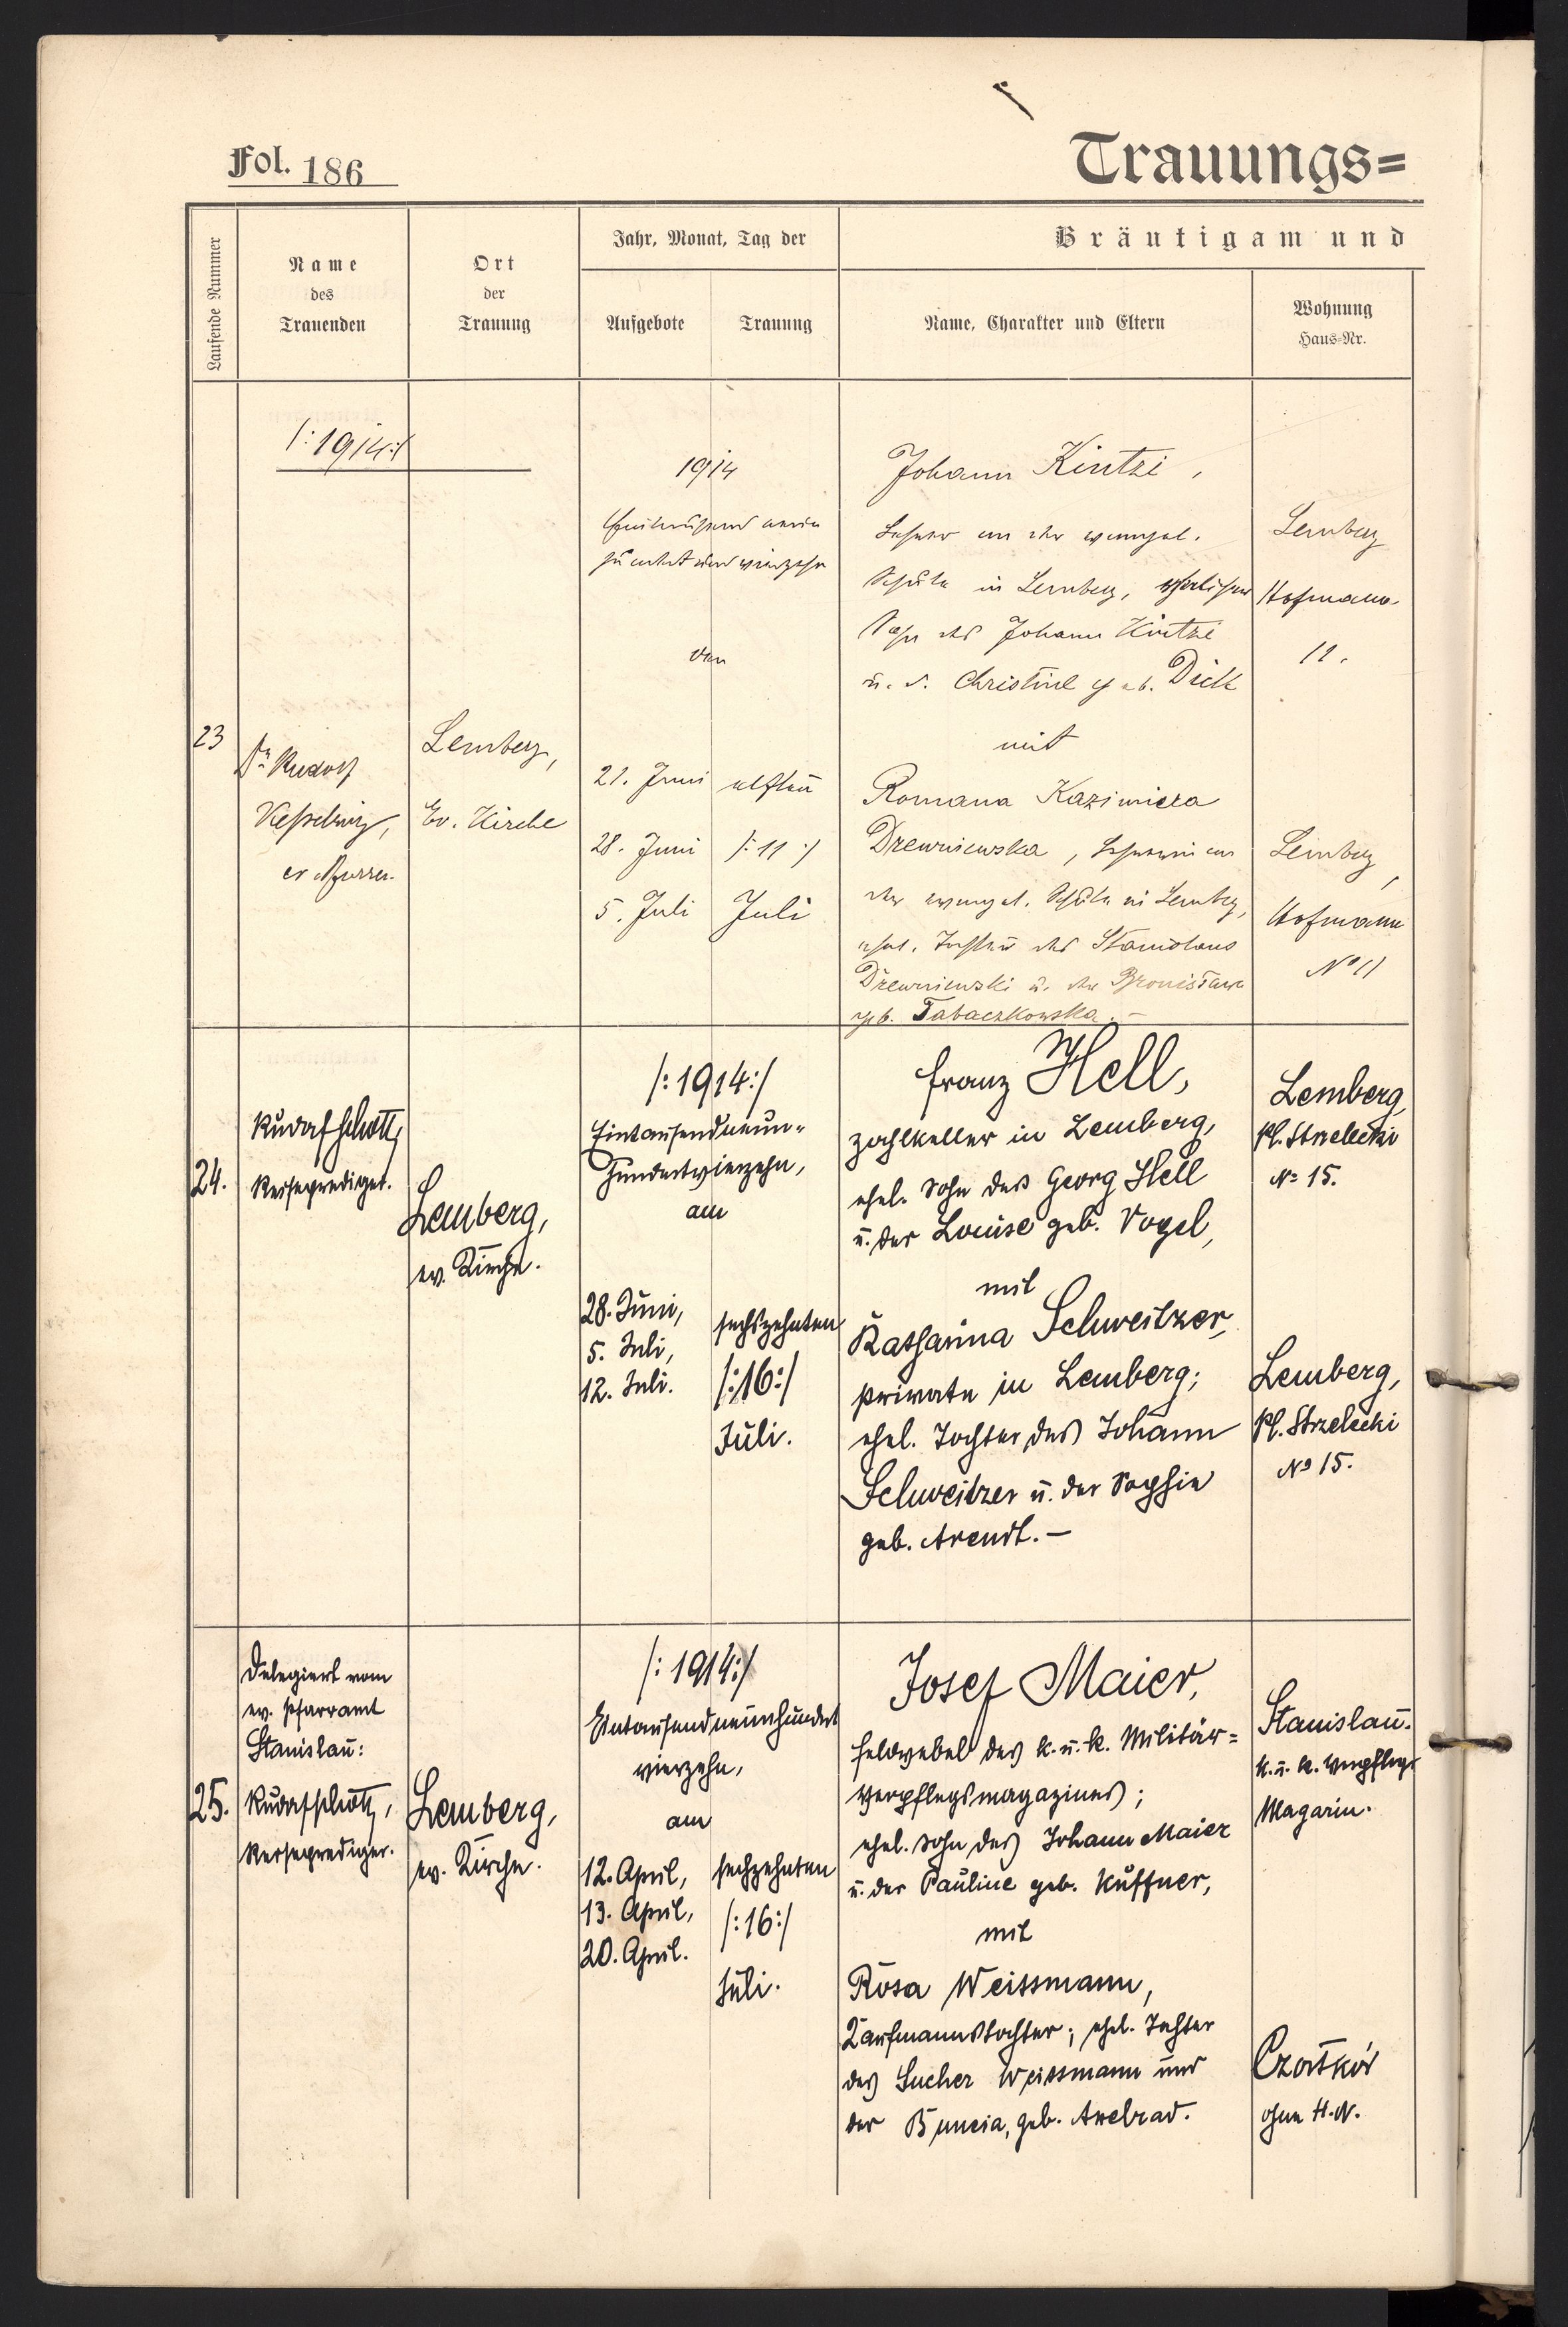 Fol. 186
Trauungs=
Laufende Nummer
Name
des
Trauenden
Ort
der
Trauung
Jahr, Monat, Tag der
Aufgebote
Trauung
Bräutigam und
Name, Charakter und Eltern
Wohnung
Haus-Nr.
/:1914:/
23
Dr Rudolf
Kesselring,
ev. Pfarrer.
Lemberg,
Ev. Kirche
1914
Eintausend neun
hundert und vierzehn
den
21. Juni
28. Juni
5. Juli
elften
/: 11 :/
Juli
Johann Kintzi,
Lehrer an der evangel.
Schule in Lemberg, ehelicher
Sohn des Johann Kintzi
u. d. Christine geb. Dick
mit
Romana Kazimiera
Drewniewska, Lehrerin an
der evangel. Schule in Lemberg,
ehel. Tochter des Stanislaus
Drewniewski u. der Bronisława
geb. Tabaczkowska. —
Lemberg
Hofmana
11.
Lemberg,
Hofmanna
No 11
24.
Rudolf Schott,
Reiseprediger.
Lemberg,
ev. Kirche.
/:1914:/
Eintausendneun-
hundertvierzehn,
am
28. Juni,
5. Juli,
12. Juli.
sechszehnten
/:16:/
Juli.
Franz Hell,
Zahlkellner in Lemberg,
ehel. Sohn des Georg Hell
u. der Louise geb. Vogel,
mit
Katharina Schweitzer,
Private in Lemberg;
ehel. Tochter des Johann
Schweitzer u. der Sophie
geb. Arendt. —
Lemberg,
Pl. Strzelecki
No 15.
Lemberg,
Pl. Strzelecki
No 15.
25.
Delegiert vom
ev. Pfarramt
Stanislau:
Rudolf Schott,
Reiseprediger.
Lemberg,
ev. Kirche.
/:1914:/
Eintausendneunhundert
vierzehn,
am
12. April,
13. April,
20. April.
sechzehnten
/:16:/
Juli.
Josef Maier,
Feldwebel des k. u. k. Militär=
Verpflegsmagazines;
ehel. Sohn des Johann Maier
u. der Pauline geb. Kuffner,
mit
Rosa Weissmann,
Kaufmannstochter; ehel. Tochter
des Sucher Weissmann und
der Buncia, geb. Axelrad.
Stanislau.
k. u. k. Verpflegs
Magazin.
Czortków
ohne H. N.